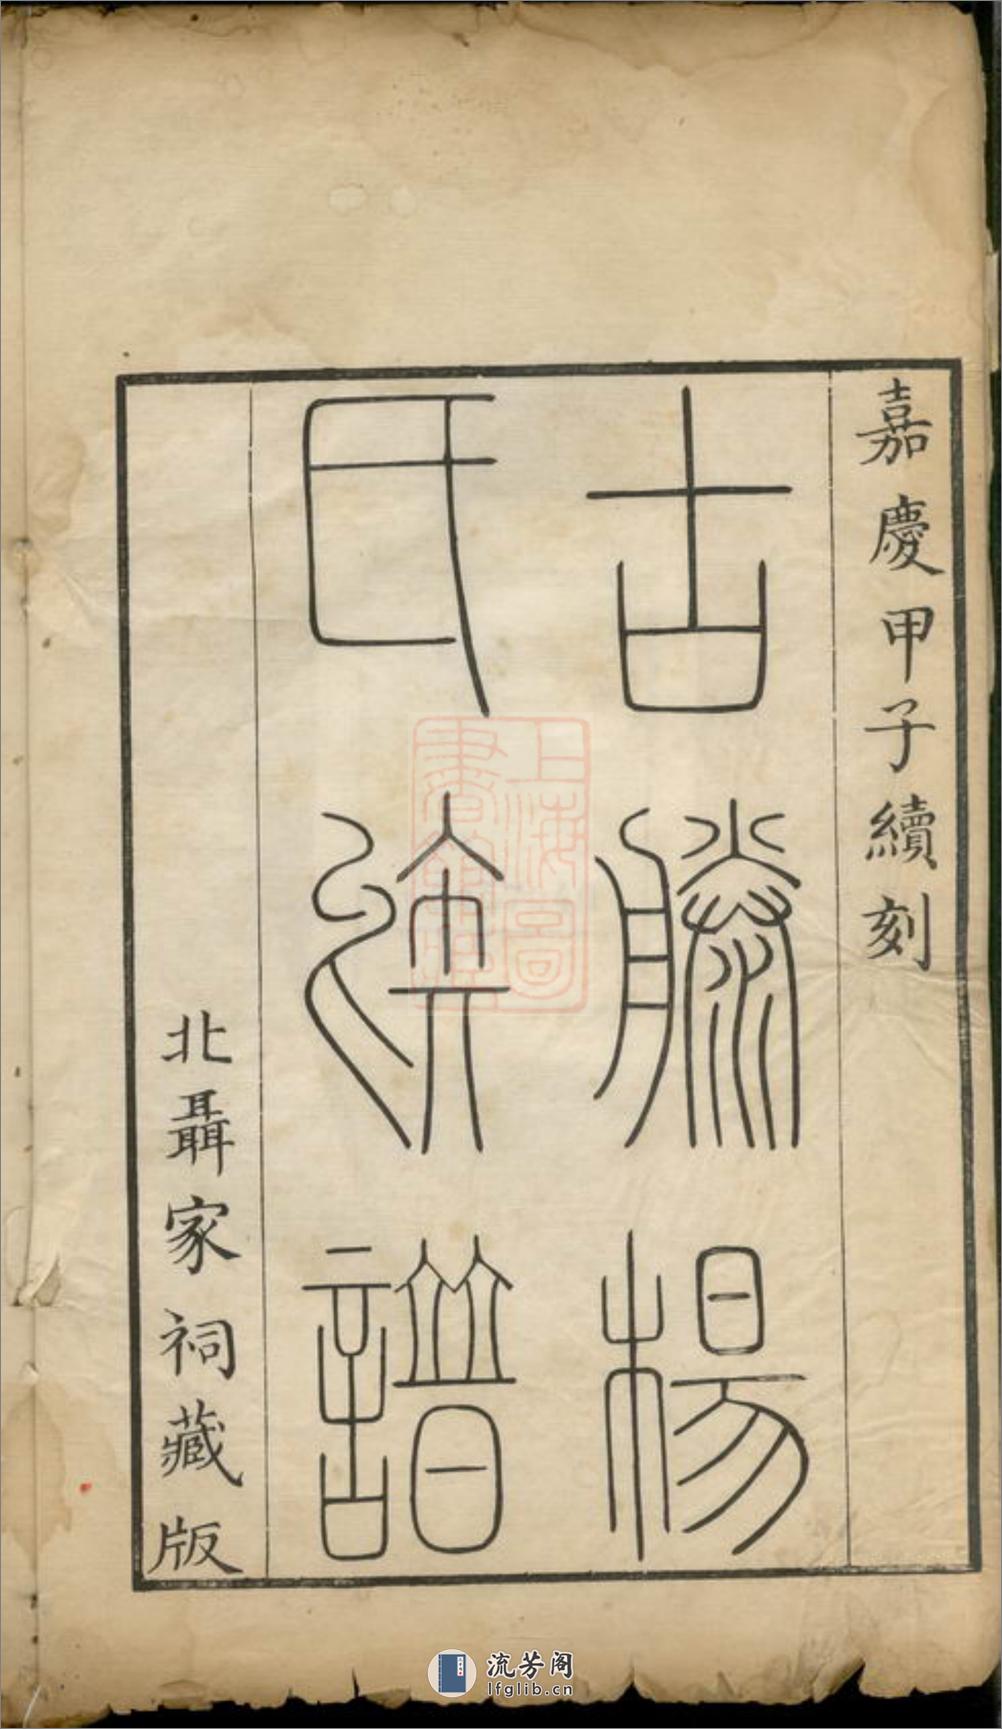 嘉慶甲子續刻
古勝楊
氏譜
北聶家祠藏版
上海圖
書館藏
流芳阁
lfglib.cn